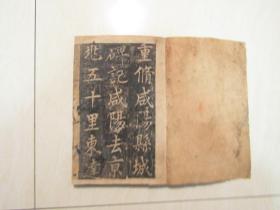 重脩咸陽縣城
碑記咸陽去京
兆五十里東